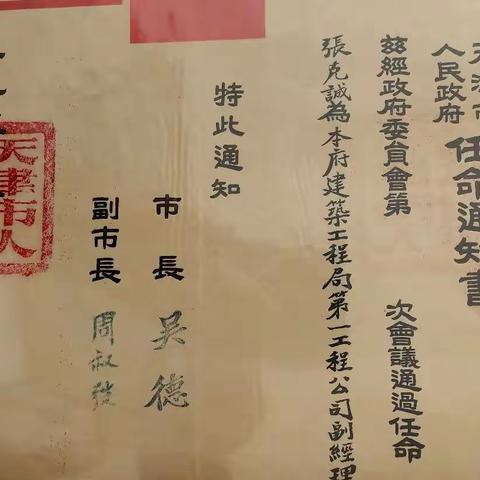 天津市
人民政府
任命通知書
茲經政府委員會第 次會議通過任命
張克誠為本府建築工程局第一工程公司副經理
特此通知
市長 吳德
副市長 周叔弢
天津市人